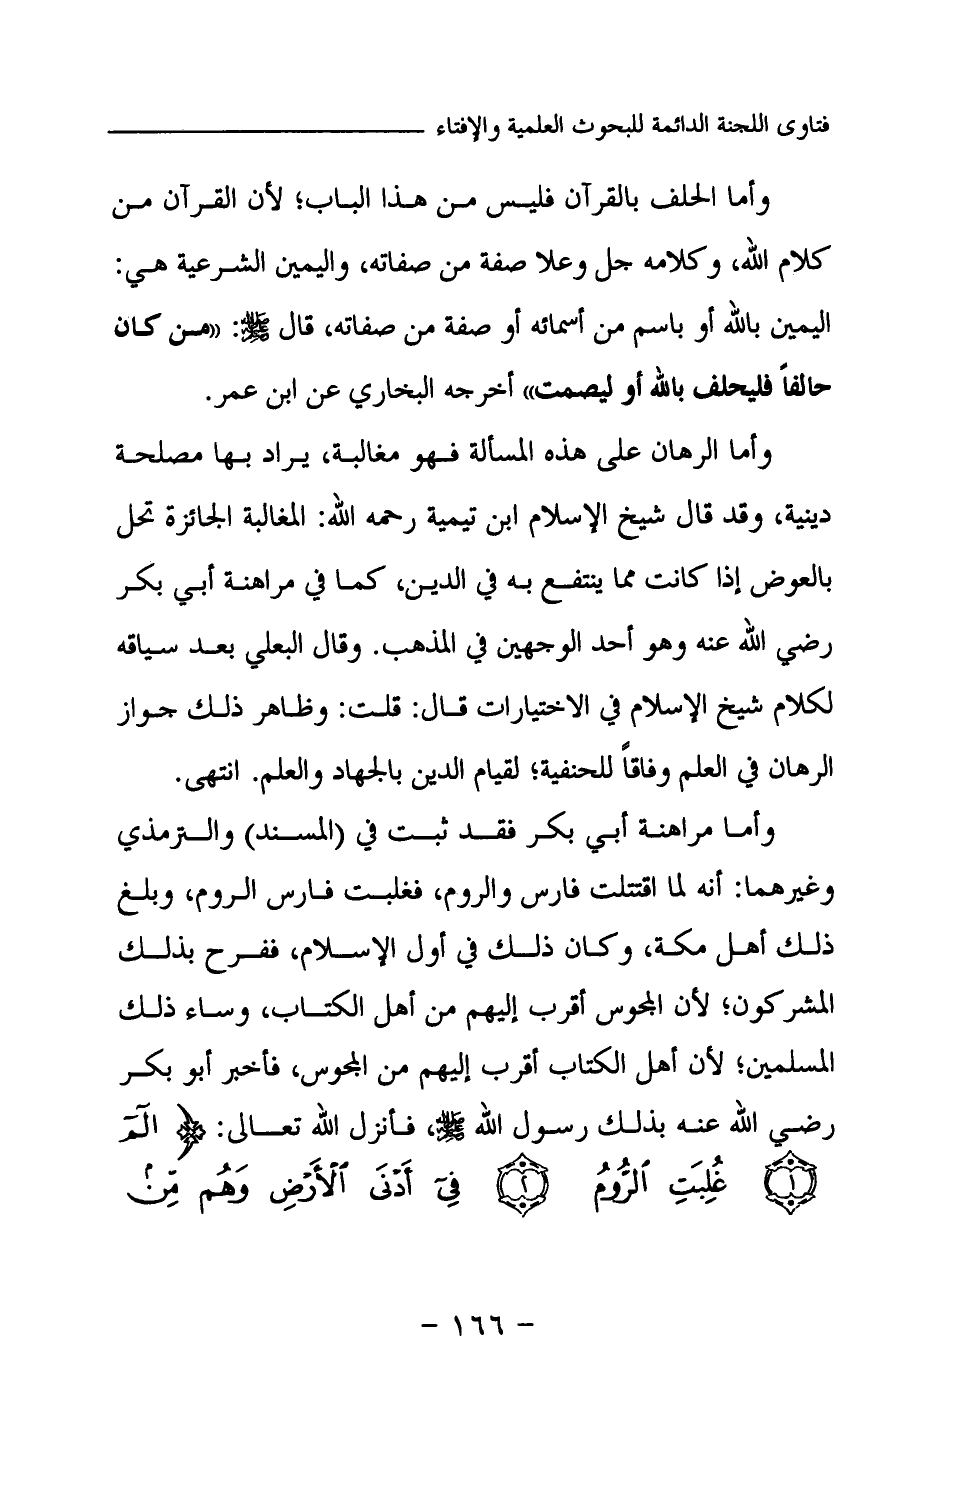 فتاوى اللجنة الدائمة للبحوث العلمية والإفتاء
وأما الحلف بالقرآن فليس من هذا الباب؛ لأن القرآن من
كلام الله، وكلامه جل وعلا صفة من صفاته، واليمين الشرعية هي:
اليمين بالله أو باسم من أسمائه أو صفة من صفاته، قال ﷺ: «من كان
حالفاً فليحلف بالله أو ليصمت» أخرجه البخاري عن ابن عمر.
وأما الرهان على هذه المسألة فهو مغالبة، يراد بها مصلحة
دينية، وقد قال شيخ الإسلام ابن تيمية رحمه الله: المغالبة الجائزة تحل
بالعوض إذا كانت مما ينتفع به في الدين، كما في مراهنة أبي بكر
رضي الله عنه وهو أحد الوجهين في المذهب. وقال البعلي بعد سياقه
لكلام شيخ الإسلام في الاختيارات قال: قلت: وظاهر ذلك جواز
الرهان في العلم وفاقاً للحنفية؛ لقيام الدين بالجهاد والعلم. انتهى.
وأما مراهنة أبي بكر فقد ثبت في (المسند) والترمذي
وغيرهما: أنه لما اقتتلت فارس والروم، فغلبت فارس الروم، وبلغ
ذلك أهل مكة، وكان ذلك في أول الإسلام، ففرح بذلك
المشركون؛ لأن المجوس أقرب إليهم من أهل الكتاب، وساء ذلك
المسلمين؛ لأن أهل الكتاب أقرب إليهم من المجوس، فأخبر أبو بكر
رضي الله عنه بذلك رسول الله ﷺ، فأنزل الله تعالى: ﴿ الٓمٓ
۝١ غُلِبَتِ ٱلرُّومُ ۝٢ فِىٓ أَدْنَى ٱلْأَرْضِ وَهُم مِّنۢ
- ١٦٦ -